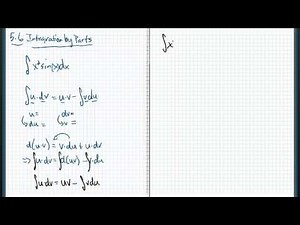 5.6 Integration by Parts
∫x² sin(x)dx
∫u·dv = u·v - ∫vdu
u= dv=
↳du= v=
d(u·v) = v·du + u·dv
⇒ ∫u·dv = ∫d(uv) - ∫v·du
∫udv = uv - ∫vdu
∫x